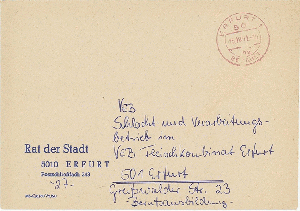 ERFURT 1
Rat der Stadt
5010 ERFURT
VEB
Schlacht und Verarbeitungs-
betrieb im
VEB Fleischkombinat Erfurt
501 Erfurt
Greifswalder Str. 23
Berufsausbildung